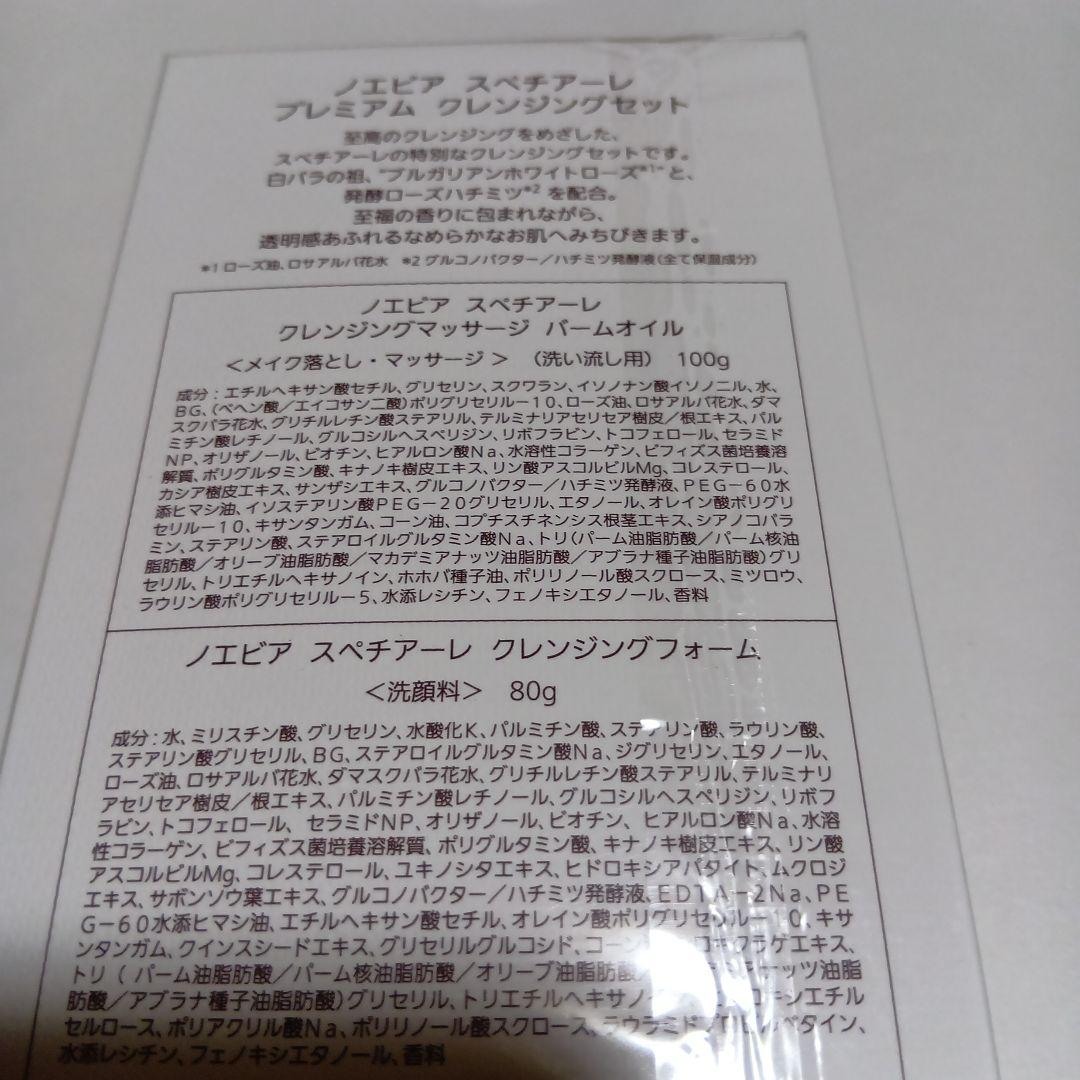 ノエビア スペチアーレ
プレミアム クレンジングセット
至高のクレンジングをめざした、
スペチアーレの特別なクレンジングセットです。
白バラの祖、"ブルガリアンホワイトローズ*1"と、
発酵ローズハチミツ*2 を配合。
至福の香りに包まれながら、
透明感あふれるなめらかなお肌へみちびきます。
*1 ローズ油、ロサアルバ花水 *2 グルコノバクター/ハチミツ発酵液(全て保湿成分)
ノエビア スペチアーレ
クレンジングマッサージ バームオイル
<メイク落とし・マッサージ> (洗い流し用) 100g
成分:エチルヘキサン酸セチル、グリセリン、スクワラン、イソノナン酸イソノニル、水、
BG、(ベヘン酸/エイコサン二酸)ポリグリセリル-10、ローズ油、ロサアルバ花水、ダマ
スクバラ花水、グリチルレチン酸ステアリル、テルミナリアセリセア樹皮/根エキス、パル
ミチン酸レチノール、グルコシルヘスペリジン、リボフラビン、トコフェロール、セラミド
NP、オリザノール、ビオチン、ヒアルロン酸Na、水溶性コラーゲン、ビフィズス菌培養溶
解質、ポリグルタミン酸、キナノキ樹皮エキス、リン酸アスコルビルMg、コレステロール、
カシア樹皮エキス、サンザシエキス、グルコノバクター/ハチミツ発酵液、PEG-60水
添ヒマシ油、イソステアリン酸PEG-20グリセリル、エタノール、オレイン酸ポリグリ
セリル-10、キサンタンガム、コーン油、コプチスチネンシス根茎エキス、シアノコバラ
ミン、ステアリン酸、ステアロイルグルタミン酸Na、トリ(パーム油脂肪酸/パーム核油
脂肪酸/オリーブ油脂肪酸/マカデミアナッツ油脂肪酸/アブラナ種子油脂肪酸)グリ
セリル、トリエチルヘキサノイン、ホホバ種子油、ポリリノール酸スクロース、ミツロウ、
ラウリン酸ポリグリセリル-5、水添レシチン、フェノキシエタノール、香料
ノエビア スペチアーレ クレンジングフォーム
<洗顔料> 80g
成分:水、ミリスチン酸、グリセリン、水酸化K、パルミチン酸、ステアリン酸、ラウリン酸、
ステアリン酸グリセリル、BG、ステアロイルグルタミン酸Na、ジグリセリン、エタノール、
ローズ油、ロサアルバ花水、ダマスクバラ花水、グリチルレチン酸ステアリル、テルミナリ
アセリセア樹皮/根エキス、パルミチン酸レチノール、グルコシルヘスペリジン、リボフ
ラビン、トコフェロール、セラミドNP、オリザノール、ビオチン、ヒアルロン酸Na、水溶
性コラーゲン、ビフィズス菌培養溶解質、ポリグルタミン酸、キナノキ樹皮エキス、リン酸
アスコルビルMg、コレステロール、ユキノシタエキス、ヒドロキシアパタイト、ムクロジ
エキス、サボンソウ葉エキス、グルコノバクター/ハチミツ発酵液、EDTA-2Na、PE
G-60水添ヒマシ油、エチルヘキサン酸セチル、オレイン酸ポリグリセリル-10、キサ
ンタンガム、クインスシードエキス、グリセリルグルコシド、コーン
トリ(パーム油脂肪酸/パーム核油脂肪酸/オリーブ油脂肪酸 ナッツ油脂
肪酸/アブラナ種子油脂肪酸)グリセリル、トリエチルヘキサノ キシエチル
セルロース、ポリアクリル酸Na、ポリリノール酸スクロース、ラウラミドプロピルベタイン、
水添レシチン、フェノキシエタノール、香料